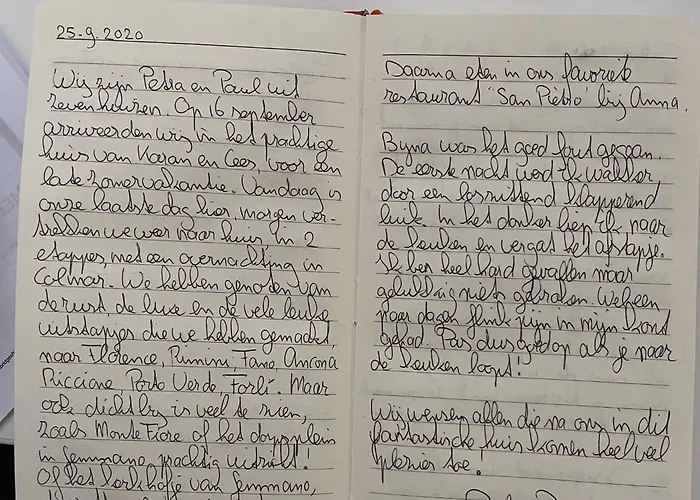 25-9-2020
Wij zijn Petra en Paul uit
Zevenhuizen. Op 16 september
arriveerden wij in het prachtige
huis van Karan en Cees, voor een
late zomervakantie. Vandaag is
onze laatste dag hier, morgen ver-
trekken we weer naar huis, in 2
etappes, met een overnachting in
Colmar. We hebben genoten van
de rust, de luxe en de vele leuke
uitstapjes die we hebben gemaakt,
naar Florence, Rimini, Fano, Ancona
Riccione, Porto Verde, Forlí. Maar
ook dichtbij is veel te zien,
zoals Monte Fiore of het dorpsplein
in Gemmano, prachtig uitzicht!
Of het kerkhofje van Gemmano,
Daarna eten in ons favoriete
restaurant "San Piètro" bij Anna.
Bijna was het goed fout gegaan.
De eerste nacht werd ik wakker
door een loszittend klapperend
luik. In het donker liep ik naar
de keuken en vergat het afstapje.
Ik ben heel hard gevallen maar
gelukkig niets gebroken. Wel een
paar dagen flink pijn in mijn kont
gehad. Pas dus goed op als je naar
de keuken loopt!
Wij wensen allen die na ons in dit
fantastische huis komen heel veel
plezier toe!